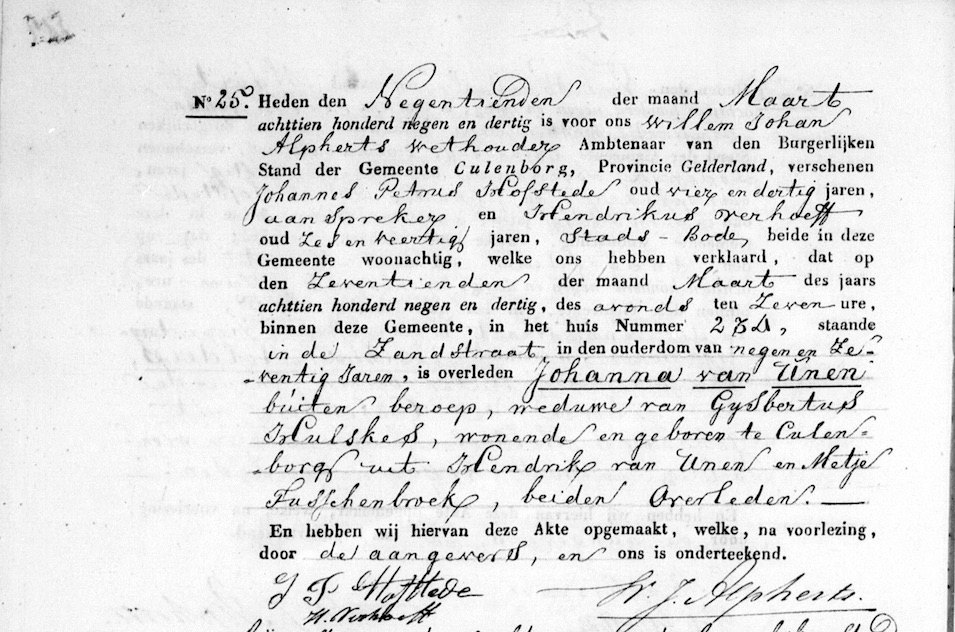 No 25. Heden den Negentienden der maand Maart
achttien honderd negen en dertig is voor ons Willem Johan
Alpherts wethouder Ambtenaar van den Burgerlijken
Stand der Gemeente Culenborg, Provincie Gelderland, verschenen
Johannes Petrus Hofstede oud vier en dertig jaren,
aanspreker en Hendrikus verhoeff
oud Zes en veertig jaren, Stads-Bode, beide in deze
Gemeente woonachtig, welke ons hebben verklaard, dat op
den Zeventienden der maand Maart des jaars
achttien honderd negen en dertig, des avonds ten Zeven ure,
binnen deze Gemeente, in het huis Nummer 234, staande
in de Zandstraat, in den ouderdom van negen en Ze-
-ventig Jaren, is overleden Johanna van Unen
buiten beroep, weduwe van Gysbertus
Hulskes, wonende en geboren te Culen-
-borg uit Hendrik van Unen en Metje
Tusschenbroek, beiden Overleden. —
En hebben wij hiervan deze Akte opgemaakt, welke, na voorlezing,
door de aangevers, en ons is onderteekend.
J P Hofstede W. J. Alpherts.
H. Verhoeff